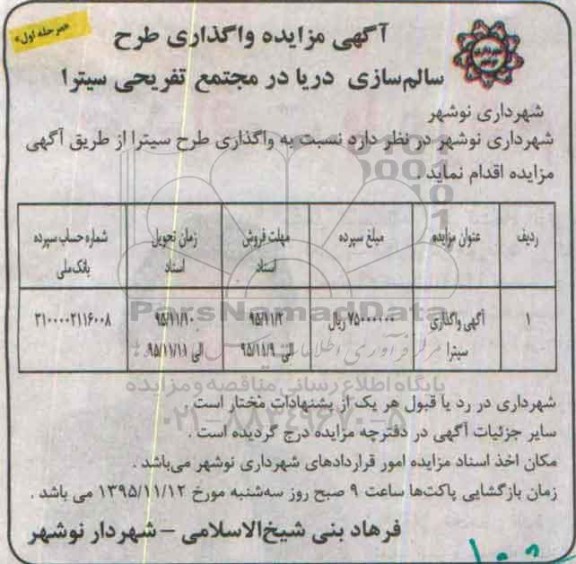 «مرحله اول»
آگهی مزایده واگذاری طرح
سالم‌سازی دریا در مجتمع تفریحی سیترا
شهرداری نوشهر
شهرداری نوشهر در نظر دارد نسبت به واگذاری طرح سیترا از طریق آگهی
مزایده اقدام نماید.
ردیف عنوان مزایده مبلغ سپرده مهلت فروش اسناد زمان تحویل اسناد شماره حساب سپرده بانک ملی
۱ آگهی واگذاری سیترا ۷۵۰۰۰۰۰۰ ریال ۹۵/۱۱/۲ الی ۹۵/۱۱/۹ ۹۵/۱۱/۱۰ الی ۹۵/۱۱/۱۱ ۳۱۰۰۰۰۲۱۱۶۰۰۸
ParsNamadData
پایگاه اطلاع رسانی مناقصه و مزایده
۰۲۱-۸۸۳۴۹۶۷۰-۵
شهرداری در رد یا قبول هر یک از پشنهادات مختار است
سایر جزئیات آگهی در دفترچه مزایده درج گردیده است .
مکان اخذ اسناد مزایده امور قراردادهای شهرداری نوشهر می‌باشد .
زمان بازگشایی پاکت‌ها ساعت ۹ صبح روز سه‌شنبه مورخ ۱۳۹۵/۱۱/۱۲ می باشد .
فرهاد بنی شیخ‌الاسلامی – شهردار نوشهر